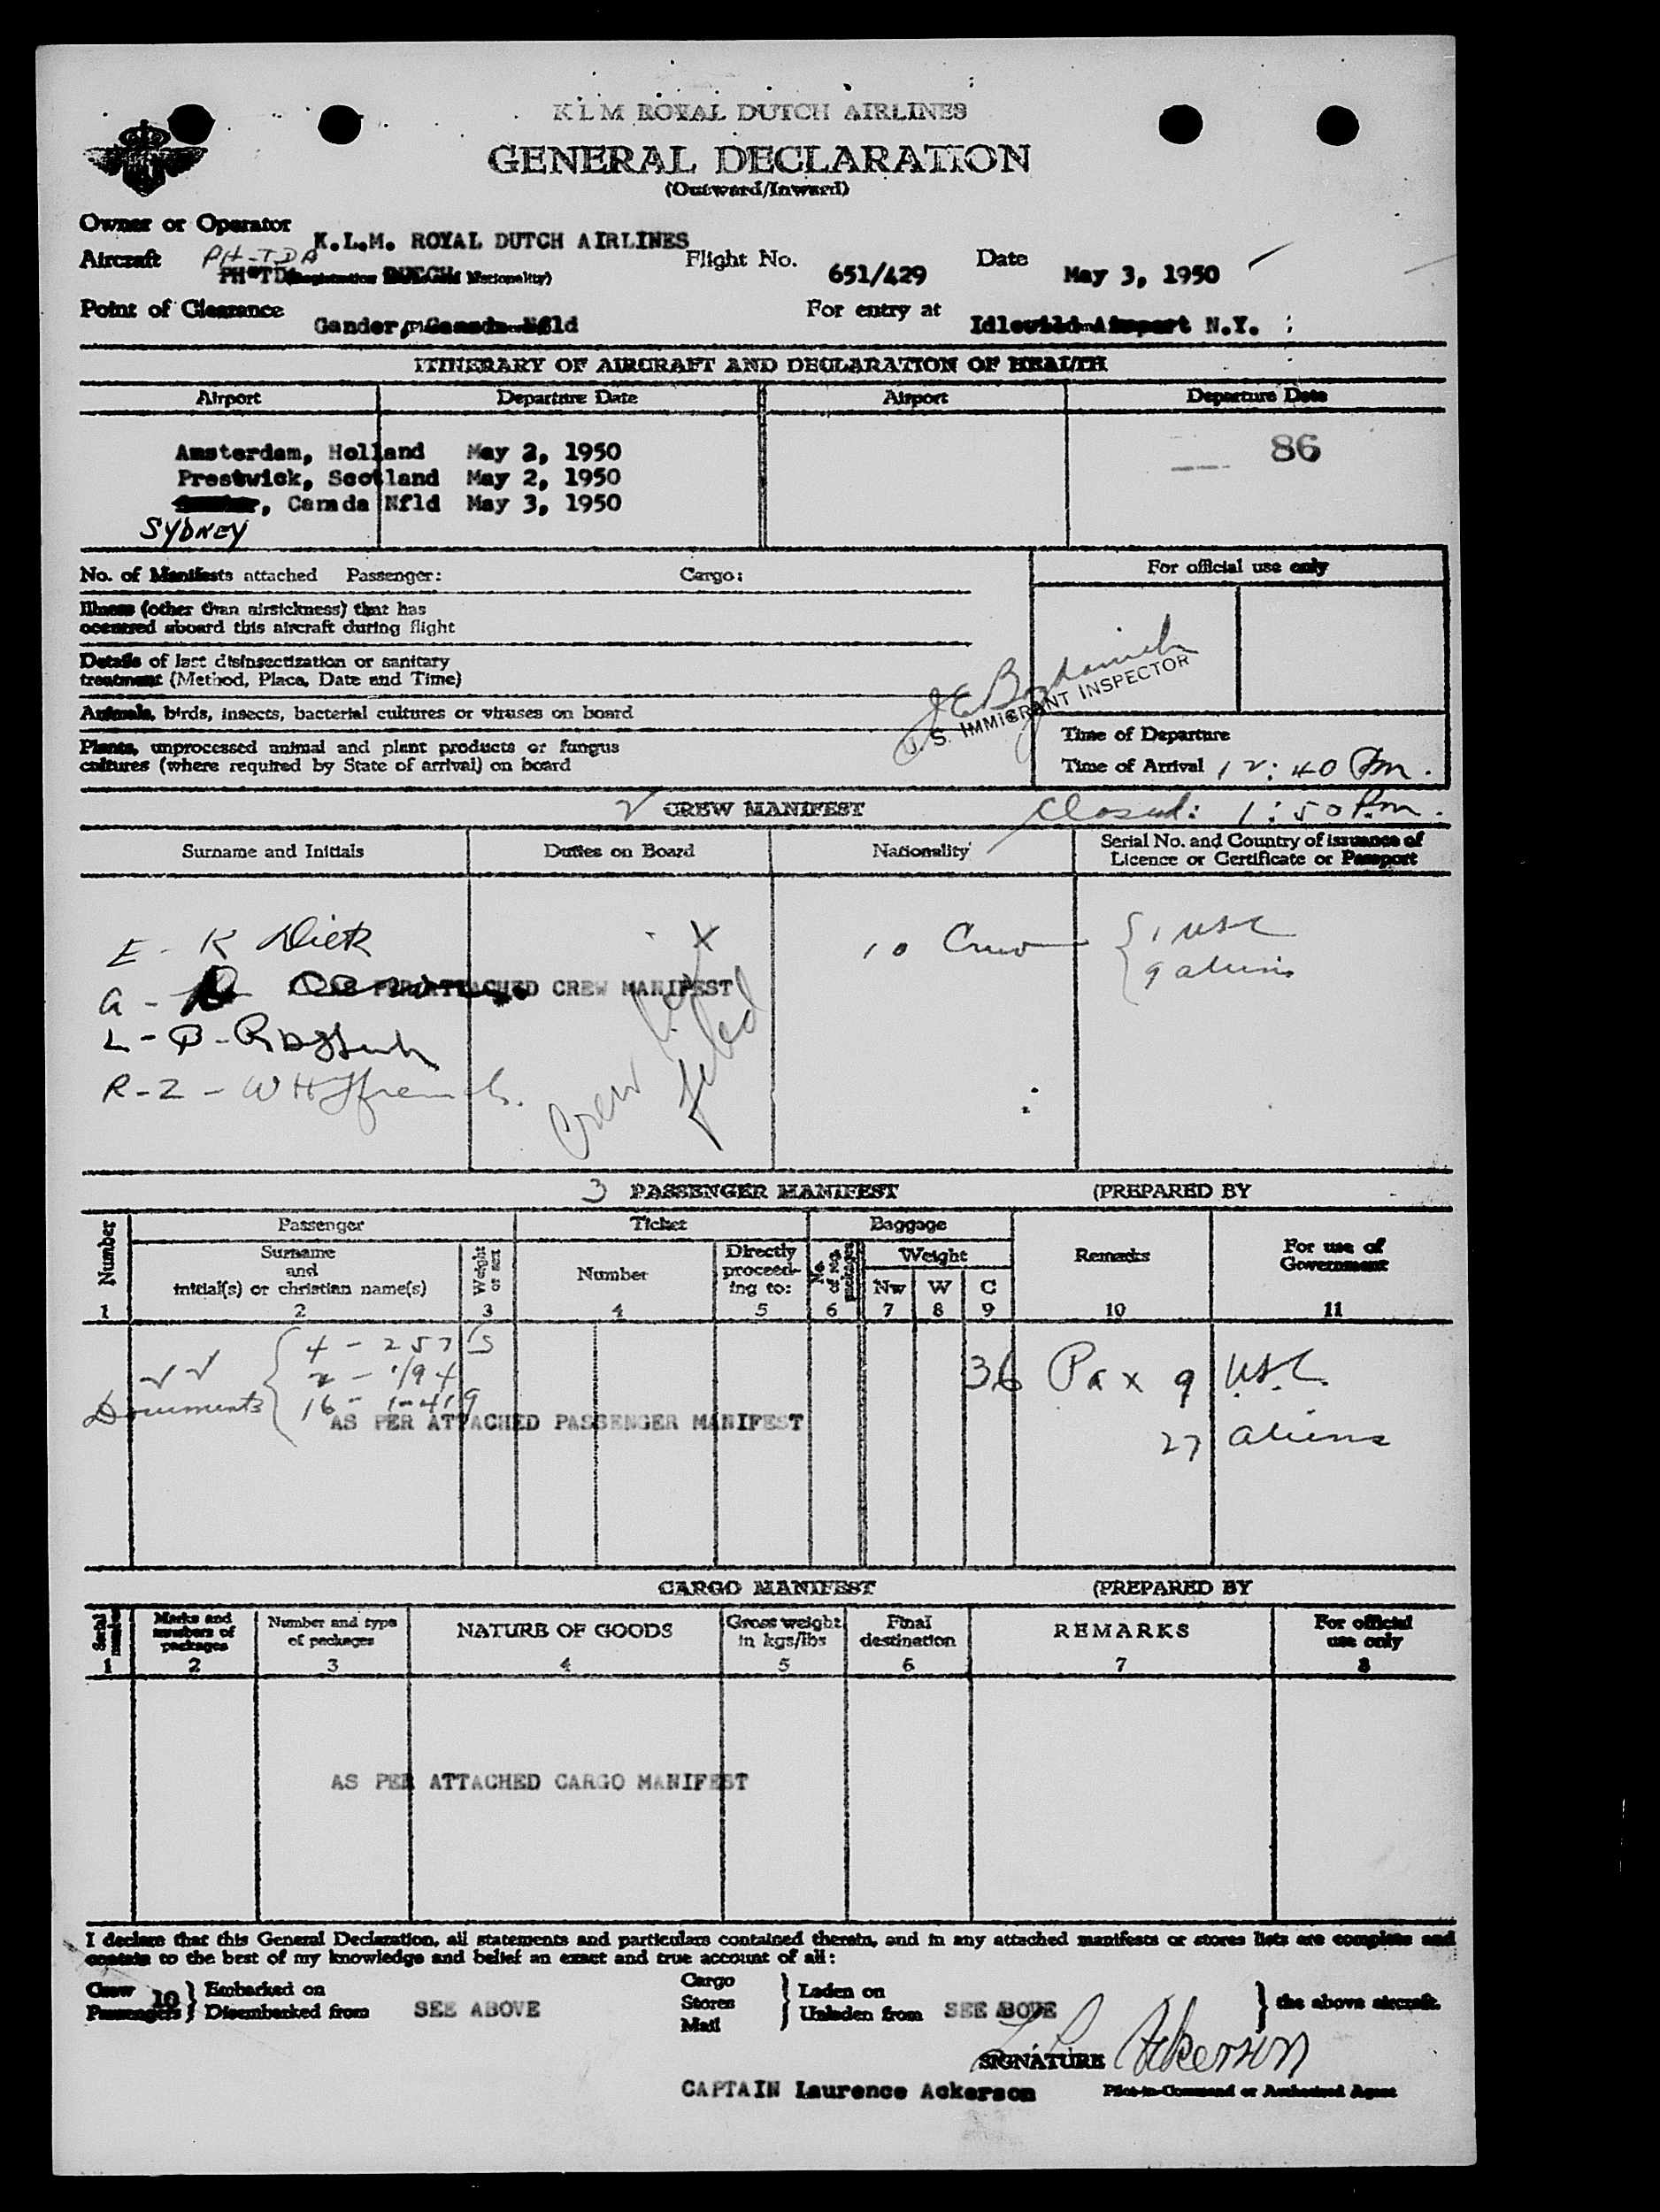 KLM ROYAL DUTCH AIRLINES
GENERAL DECLARATION
(Outward/Inward)
Owner or Operator K.L.M. ROYAL DUTCH AIRLINES
Aircraft PH-TDA Flight No. 651/429 Date May 3, 1950
PH-TD (Registration DUTCH Nationality)
Point of Clearance Gander, Canada Nfld For entry at Idlewild Airport N.Y.
ITINERARY OF AIRCRAFT AND DECLARATION OF HEALTH
Airport Departure Date Airport Departure Date
86
Amsterdam, Holland May 2, 1950
Prestwick, Scotland May 2, 1950
, Canada Nfld May 3, 1950
SYDNEY
No. of Manifests attached Passenger: Cargo: For official use only
Illness (other than airsickness) that has
occurred aboard this aircraft during flight
Details of last disinsectization or sanitary
treatment (Method, Place, Date and Time)
U. S. IMMIGRANT INSPECTOR
Animals, birds, insects, bacterial cultures or viruses on board
Plants, unprocessed animal and plant products or fungus
cultures (where required by State of arrival) on board
Time of Departure
Time of Arrival 12:40 Pm.
CREW MANIFEST Closed: 1:50 P.m.
Surname and Initials Duties on Board Nationality Serial No. and Country of issuance of
Licence or Certificate or Passport
E - K Dick X 10 Crew { 1 USC
9 aliens
G - PER ATTACHED CREW MANIFEST
L - B -
R - 2 - WH
Crew list filed
3 PASSENGER MANIFEST (PREPARED BY
Number Passenger Ticket Baggage Remarks For use of
Government
Surname
and
initial(s) or christian name(s) Weight or sex Number Directly
proceed-
ing to: No. of reg. packages Weight
Nw W C
1 2 3 4 5 6 7 8 9 10 11
4 - 257 36 Pax 9 U.S.C.
2 - 194
Documents 16 - 1-419
AS PER ATTACHED PASSENGER MANIFEST
27 aliens
CARGO MANIFEST (PREPARED BY
Serial number Marks and
numbers of
packages Number and type
of packages NATURE OF GOODS Gross weight
in kgs/lbs Final
destination REMARKS For official
use only
1 2 3 4 5 6 7 8
AS PER ATTACHED CARGO MANIFEST
I declare that this General Declaration, all statements and particulars contained therein, and in any attached manifests or stores lists are complete and
contain to the best of my knowledge and belief an exact and true account of all:
Crew 10 } Embarked on
Passengers } Disembarked from SEE ABOVE
Cargo
Stores
Mail } Laden on
Unladen from SEE ABOVE } the above aircraft.
SIGNATURE L. Ackerson
CAPTAIN Laurence Ackerson Pilot-in-Command or Authorised Agent